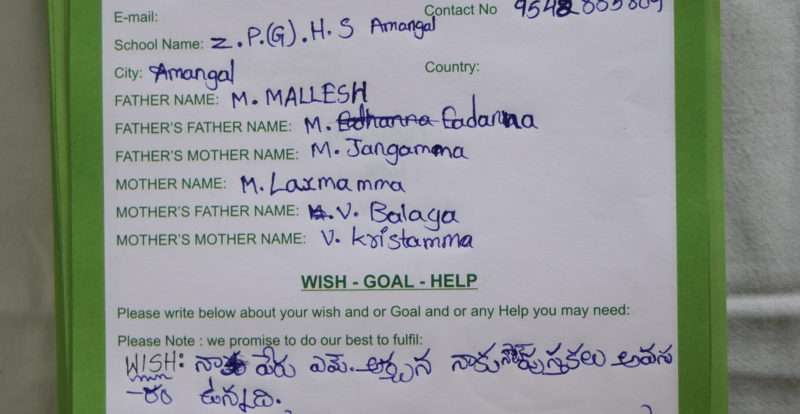 E-mail:
Contact No
School Name: Z.P.(G).H.S Amangal
City: Amangal Country:
FATHER NAME: M. MALLESH
FATHER'S FATHER NAME: M. Eadanna
FATHER'S MOTHER NAME: M. Jangamma
MOTHER NAME: M. Laxmamma
MOTHER'S FATHER NAME: V. Balaya
MOTHER'S MOTHER NAME: V. Kristamma
WISH - GOAL - HELP
Please write below about your wish and or Goal and or any Help you may need:
Please Note : we promise to do our best to fulfil:
WISH: నా పేరు ఎమ్. అర్చన నాకు నోట్పుస్తకలు అవస
-రం ఉన్నది.